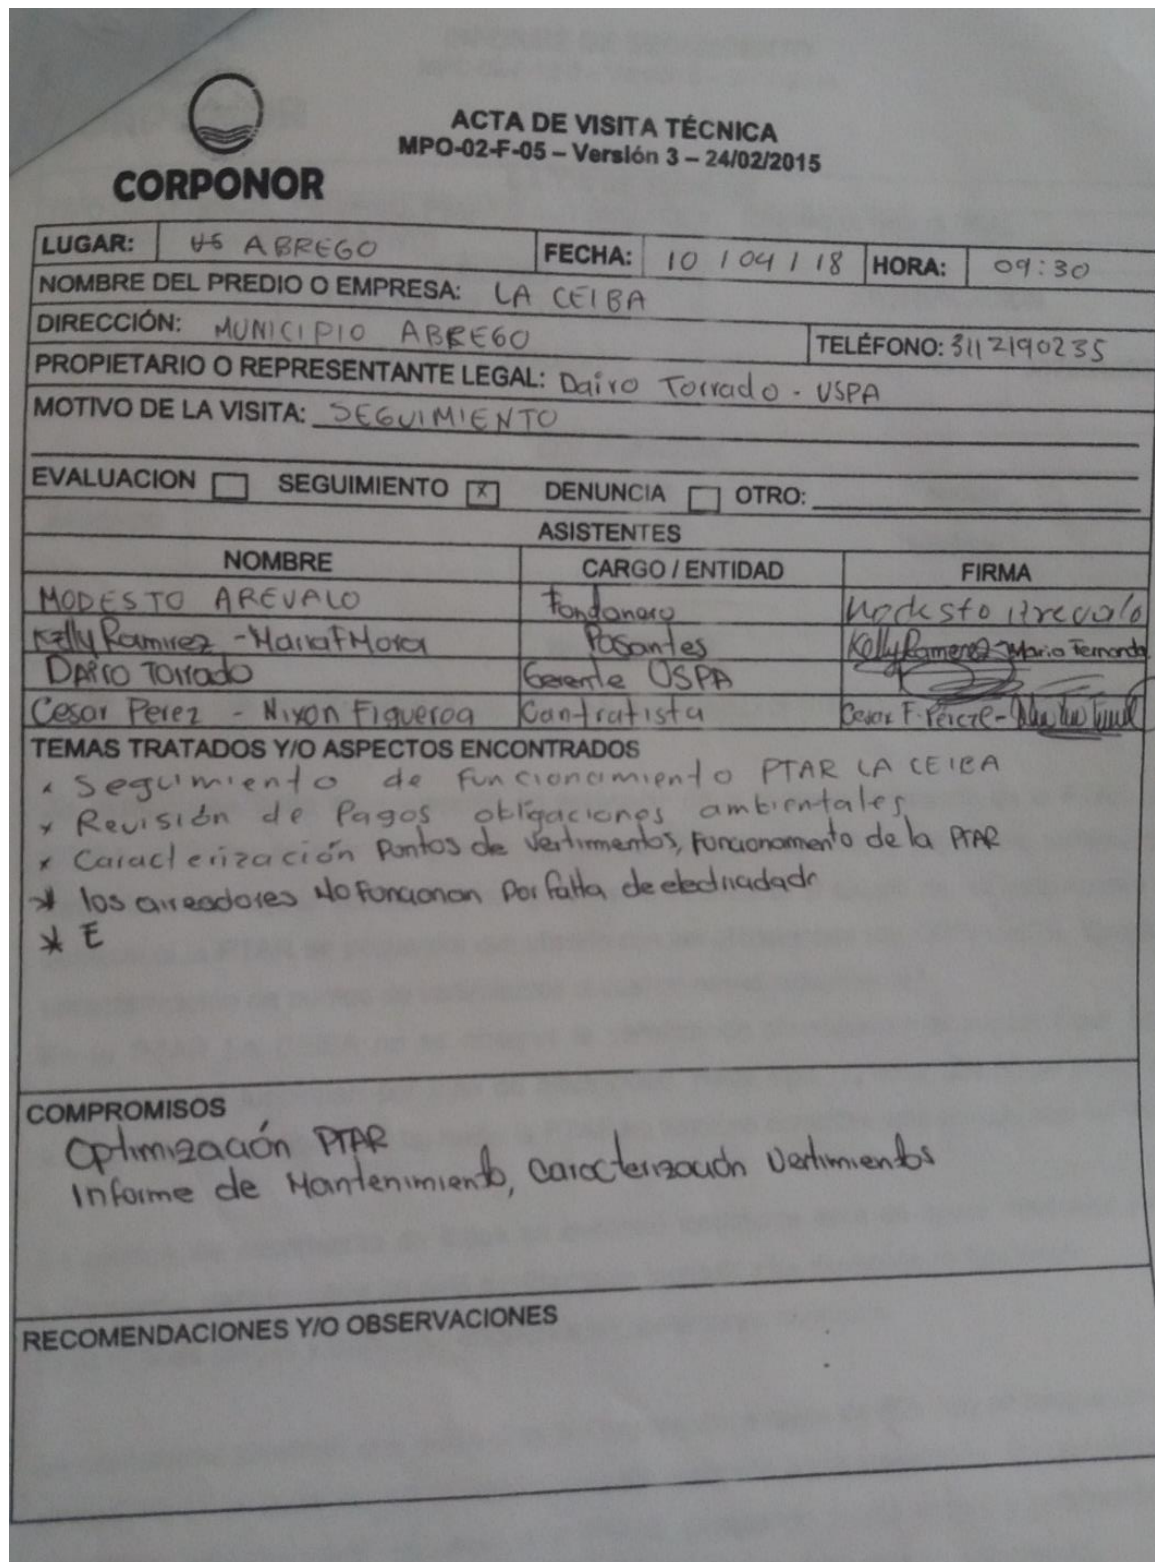 CORPONOR
ACTA DE VISITA TÉCNICA
MPO-02-F-05 – Versión 3 – 24/02/2015
LUGAR: ABREGO FECHA: 10 / 04 / 18 HORA: 09:30
NOMBRE DEL PREDIO O EMPRESA: LA CEIBA
DIRECCIÓN: MUNICIPIO ABREGO TELÉFONO: 3112190235
PROPIETARIO O REPRESENTANTE LEGAL: Dairo Torrado - USPA
MOTIVO DE LA VISITA: SEGUIMIENTO
EVALUACION SEGUIMIENTO X DENUNCIA OTRO:
ASISTENTES
NOMBRE CARGO / ENTIDAD FIRMA
MODESTO AREVALO Modesto Arevalo
Kelly Ramirez - Maria F Mora Pasantes Kelly Ramirez - Maria Fernanda
DAIRO Torrado Gerente USPA
Cesar Perez - Nixon Figueroa Contratista Cesar F. Perez -
TEMAS TRATADOS Y/O ASPECTOS ENCONTRADOS
* Seguimiento de Funcionamiento PTAR LA CEIBA
* Revisión de Pagos obligaciones ambientales
* Caracterización Puntos de Vertimentos, Funcionamento de la PTAR
* los aireadores NO Funcionan Por falta de
* E
COMPROMISOS
Optimización PTAR
Informe de Mantenimiento, Caracterización Vertimientos
RECOMENDACIONES Y/O OBSERVACIONES